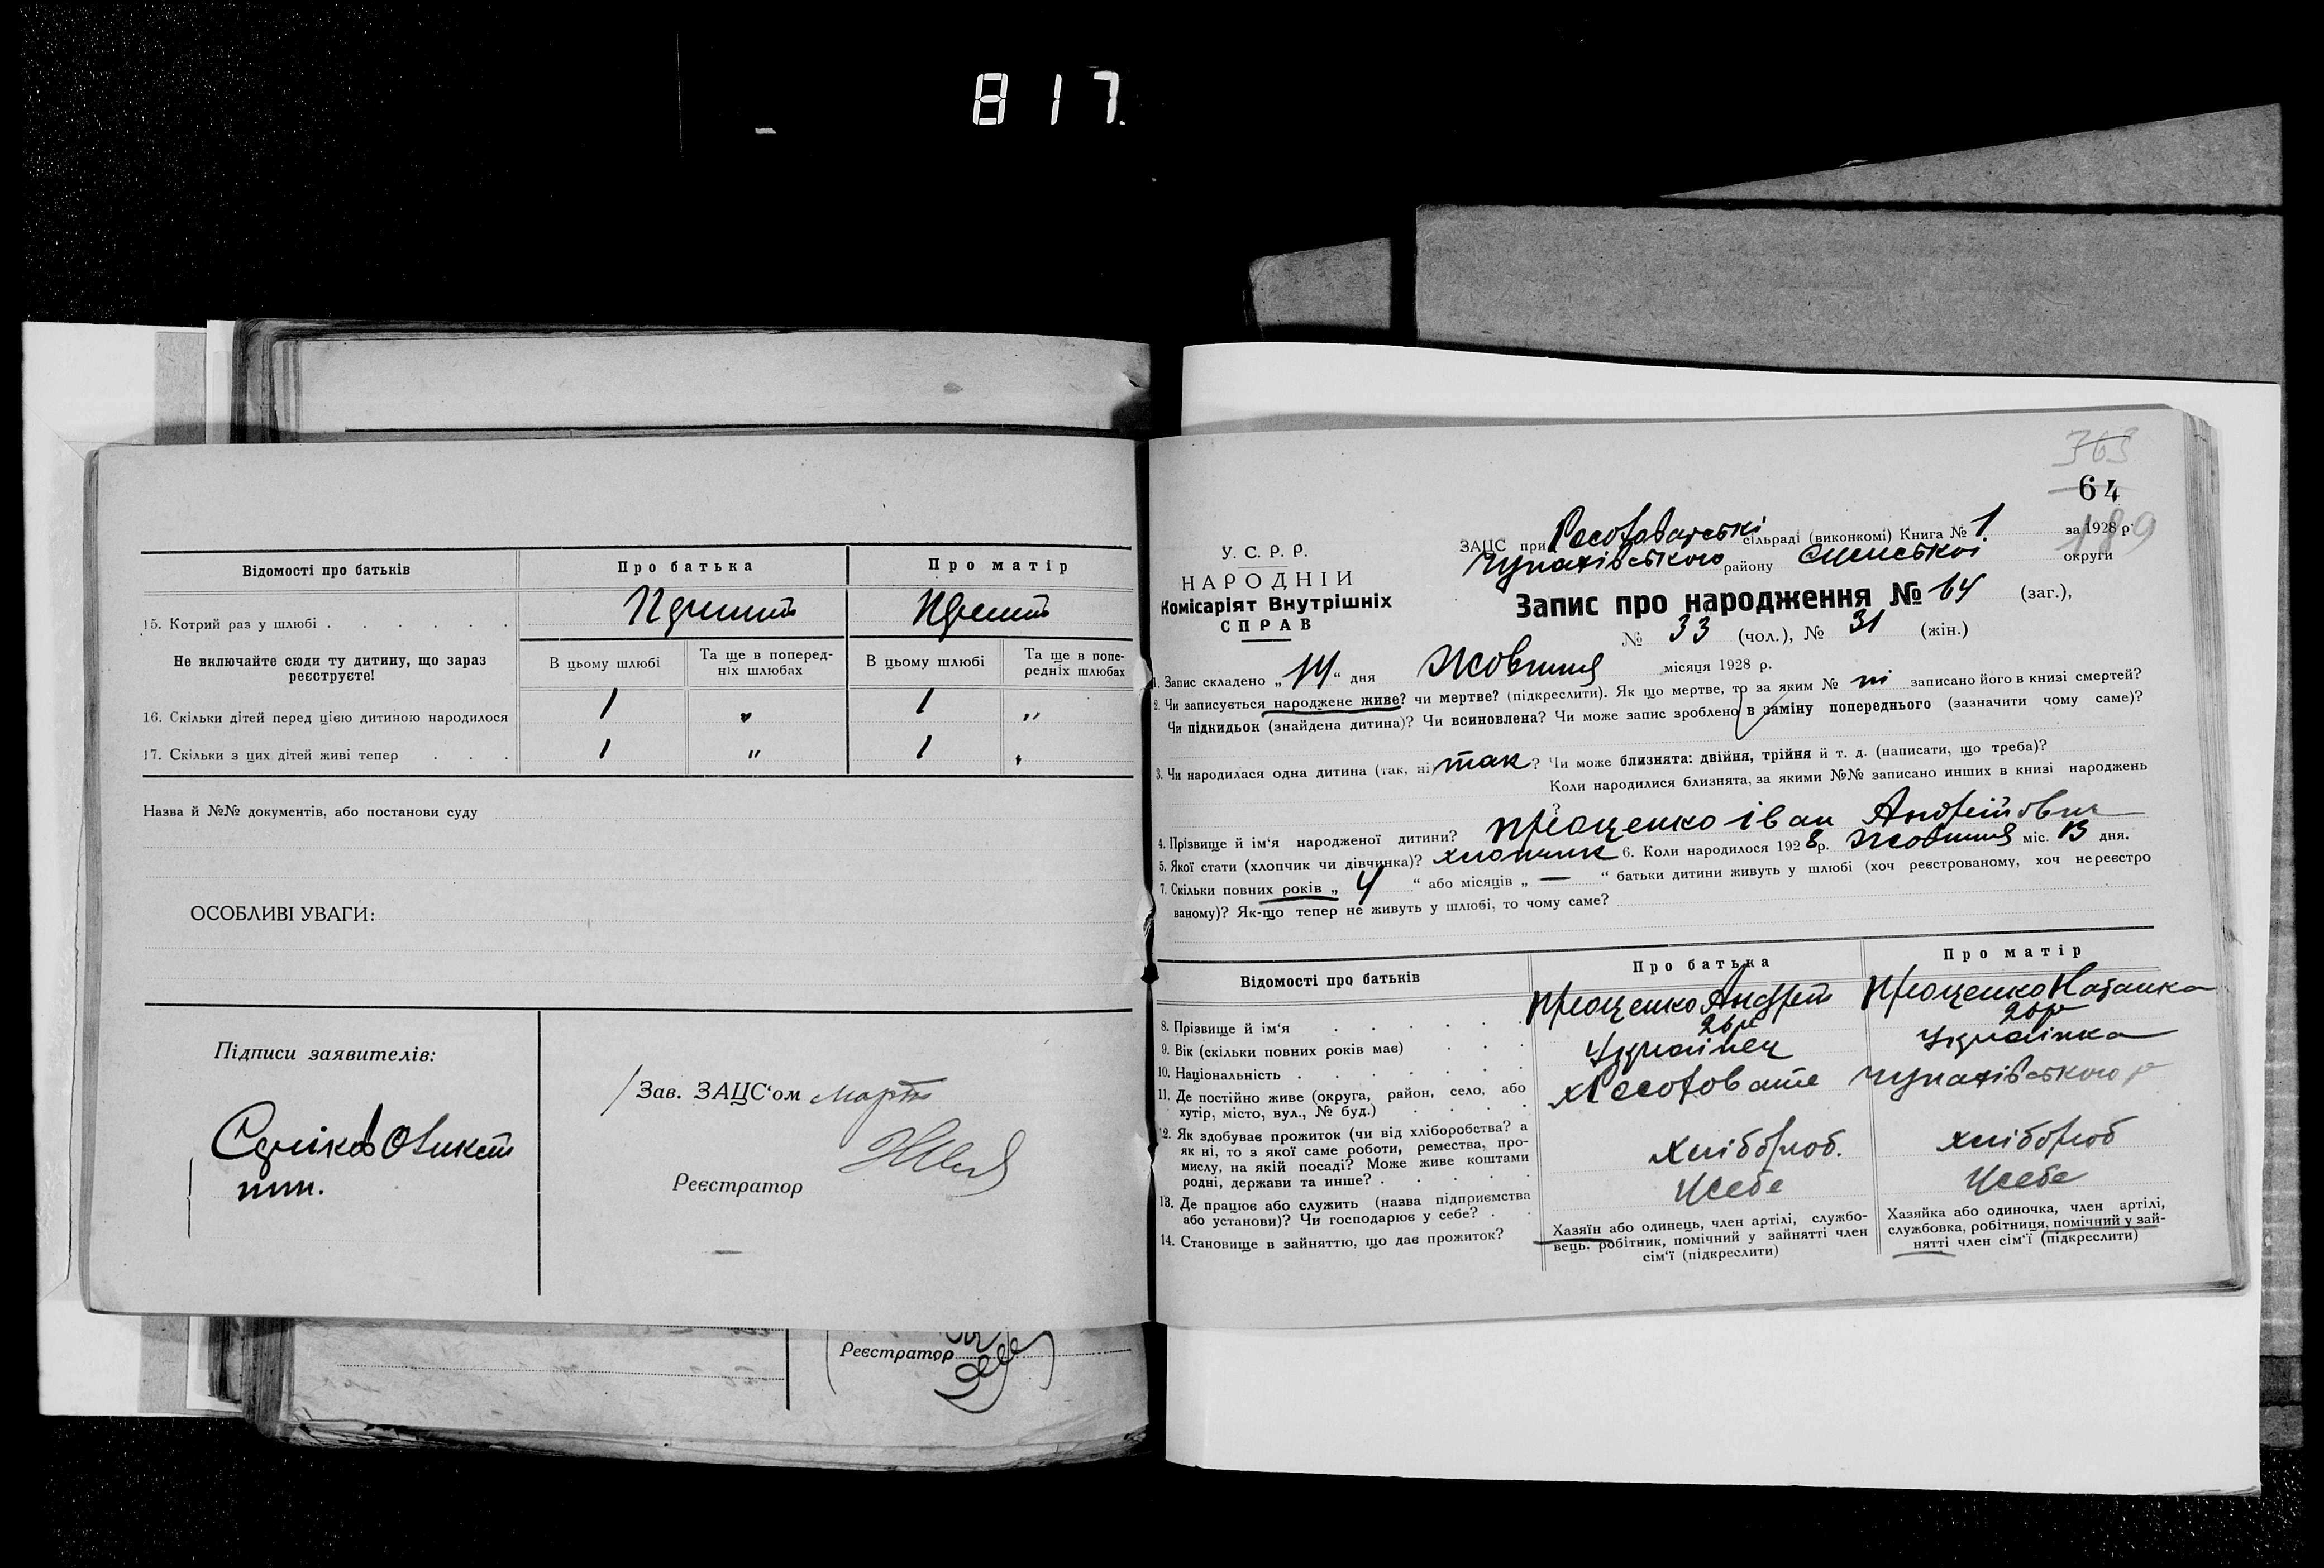 817.
Відомості про батьків
Про батька
Про матір
15. Котрий раз у шлюбі
Не включайте сюди ту дитину, що зараз реєструєте!
В цьому шлюбі
Та ще в попередніх шлюбах
В цьому шлюбі
Та ще в попередніх шлюбах
16. Скільки дітей перед цією дитиною народилося 1 " 1 "
17. Скільки з цих дітей живі тепер 1 " 1 "
Назва й №№ документів, або постанови суду
ОСОБЛИВІ УВАГИ:
Підписи заявителів:
/Зав. ЗАЦС'ом
Реєстратор
Реєстратор
363
64
189
У. С. Р. Р.
НАРОДНІЙ
Комісаріят Внутрішніх
СПРАВ
ЗАЦС при сільраді (виконкомі) Книга № 1. за 1928 р.
Чупахівського району Сумської округи
Запис про народження № 64 (заг.),
№ 33 (чол.), № 31 (жін.)
1. Запис складено „14“ дня Жовтня місяця 1928 р.
2. Чи записується народжене живе? чи мертве? (підкреслити). Як що мертве, то за яким № ні записано його в книзі смертей?
Чи підкидьок (знайдена дитина)? Чи всиновлена? Чи може запис зроблено в заміну попереднього (зазначити чому саме)?
3. Чи народилася одна дитина (так, ні) так? Чи може близнята: двійня, трійня й т. д. (написати, що треба)?
Коли народилися близнята, за якими №№ записано инших в книзі народжень
?
4. Прізвище й ім'я народженої дитини? Проценко Іван Андрійович
5. Якої стати (хлопчик чи дівчинка)? хлопчик 6. Коли народилося 1928 р. Жовтня міс. 13 дня.
7. Скільки повних років „ 4 “ або місяців „ — “ батьки дитини живуть у шлюбі (хоч реєстрованому, хоч нереєстро
ваному)? Як-що тепер не живуть у шлюбі, то чому саме?
Відомості про батьків
Про батька
Про матір
8. Прізвище й ім'я Проценко Андрій Проценко Наталка
9. Вік (скільки повних років має) 26 р 26 р
10. Національність Українец Українка
11. Де постійно живе (округа, район, село, або
хутір, місто, вул., № буд.) Чупахівського р
12. Як здобуває прожиток (чи від хліборобства? а
як ні, то з якої саме роботи, ремества, про-
мислу, на якій посаді? Може живе коштами
родні, держави та инше? Хлібороб. хлібороб
13. Де працює або служить (назва підприємства
або установи)? Чи господарює у себе? У себе У себе
14. Становище в зайняттю, що дає прожиток?
Хазяїн або одинець, член артілі, службо-
вець. робітник, помічний у зайнятті член
сім'ї (підкреслити)
Хазяйка або одиночка, член артілі,
службовка, робітниця, помічний у зай-
нятті член сім'ї (підкреслити)